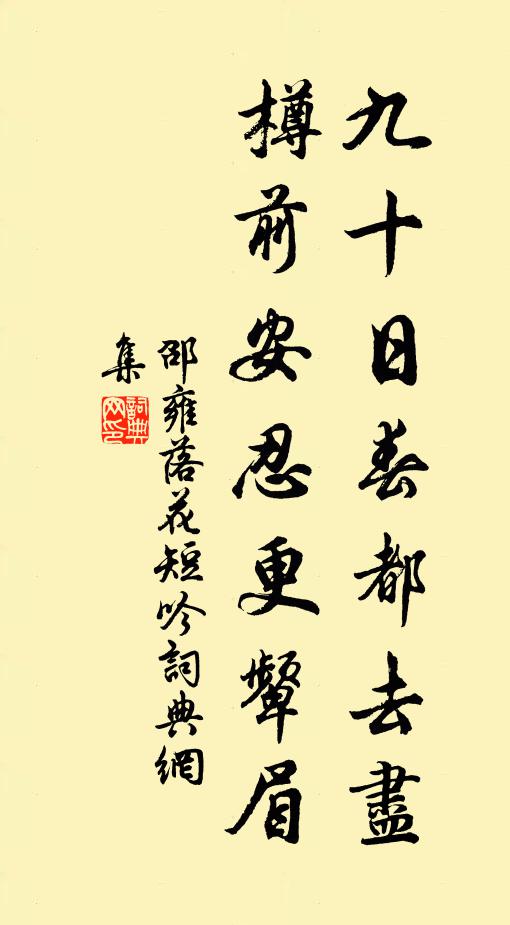 九十日春都去盡
樽前安忍更顰眉
邵雍落花短吟詞典網
集
詞典網印